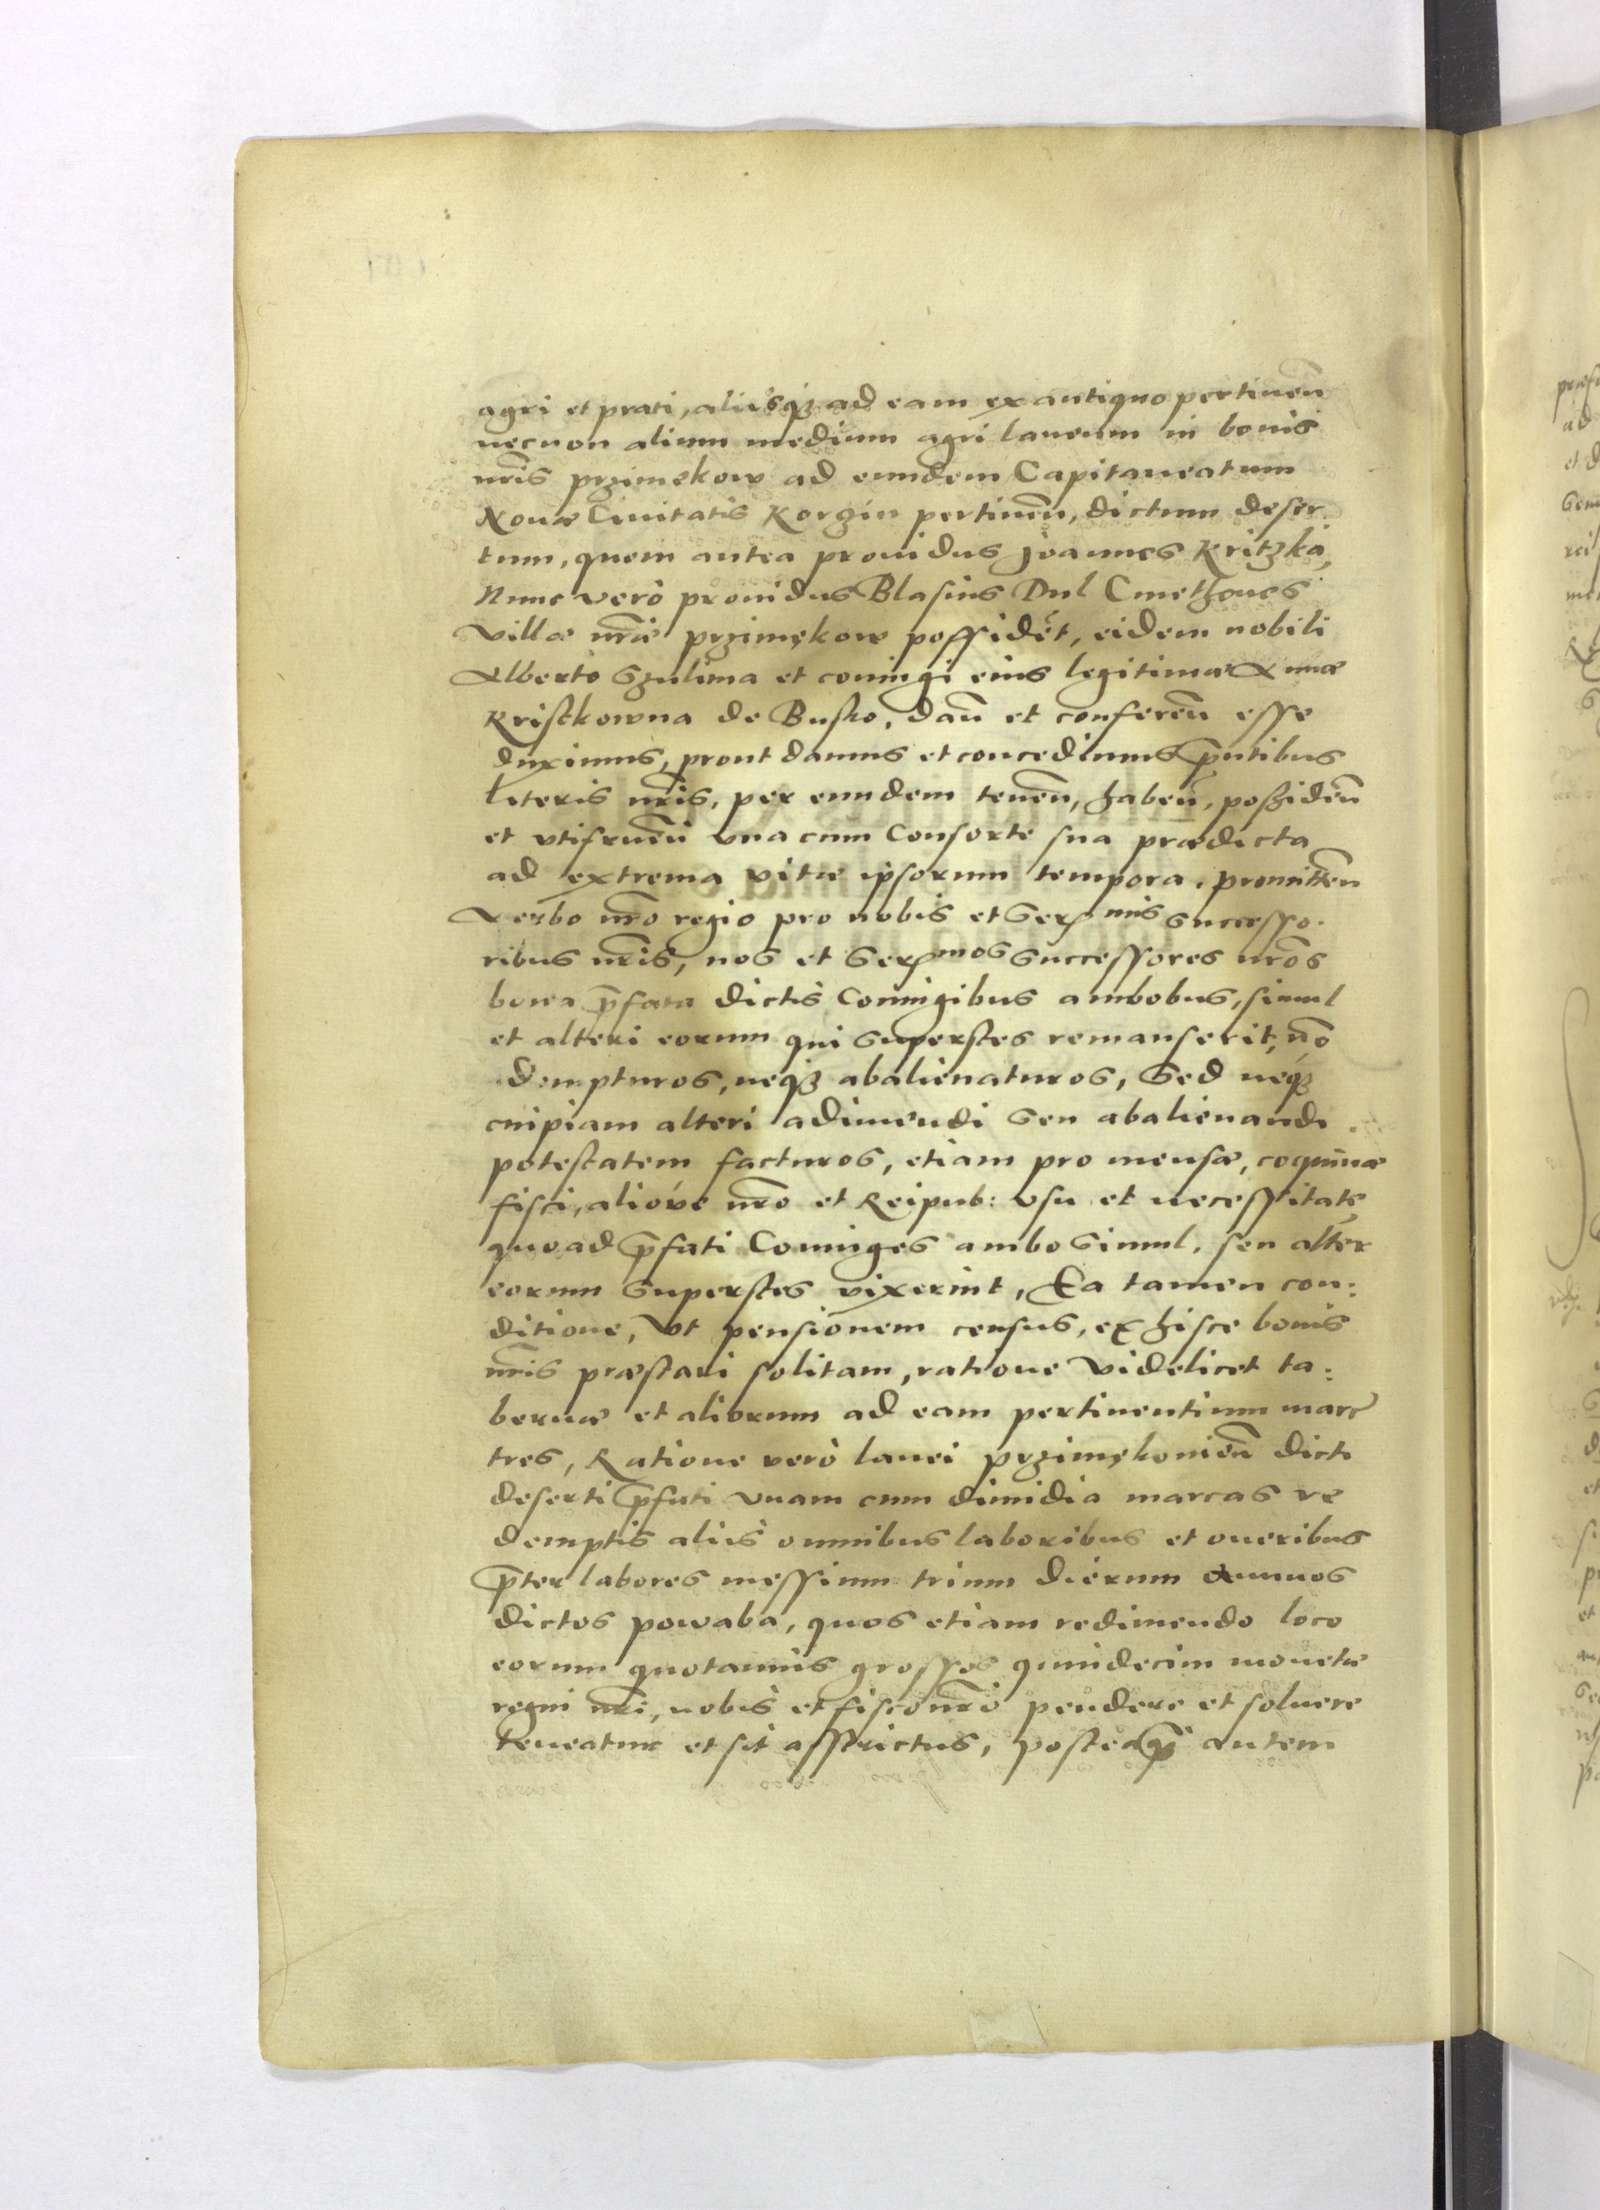 agri et prati, alijsq₃ ad eam ex antiquo pertineñ
necnon alium medium agri laneum in bonis
nr̃is przimękow ad eundem Capitaneatum
Nouæ Ciuitatis Korgin pertineñ, dictum deser
tum, quem antea prouidus Joannes Kritzka,
Nunc verò prouidus Blasius Dul Cmethones
villæ nr̃æ przimękow possidét, eidem nobili
Alberto Szulima et coniugi eius legitimæ Annæ
Kristkowna de Busko, dañ et confereñ esse
duximus, prout damus et concedimus p̃ntibus
literis nr̃is, per eundem teneñ, habeñ, possideñ
et vtifrueñ vna cum Consorte sua prædicta
ad extrema vitæ ipsorum tempora. promitteñ
Verbo nr̃o regio pro nobis et Serᵐⁱˢ successo.
ribus nr̃is, nos et Serᵐᵒˢ successores nr̃os
bona p̃fata dictis Coniugibus ambobus, simul
et alteri eorum qui superstes remanserit, nõ
dempturos, neq₃ abalienaturos, Sed neq₃
cuipiam alteri adimendi seu abalienandi
potestatem facturos, etiam pro mensæ, coquinæ
fisci, alioue nr̃o et Reipub: vsu et necessitate
quoad p̃fati Coniuges ambo simul, seu alter
eorum superstes vixerint, Ea tamen con:
ditione, Vt pensionem census, ex hisce bonis
nr̃is præstari solitam, ratione videlicet ta:
bernæ et aliorum ad eam pertinentium marc̃
tres, Ratione verò lanei przimękouieñ dicti
deserti p̃fati vnam cum dimidia marcas re
demptis alijs omnibus laboribus et oneribus
p̃ter labores messium trium dierum Annuos
dictos powaba, quos etiam redimendo loco
eorum quotannis grossos quindecim monetæ
regni nr̃i, nobis et fisco nr̃o pendere et soluere
teneatur et sit asstrictus, posteaq̃ autem